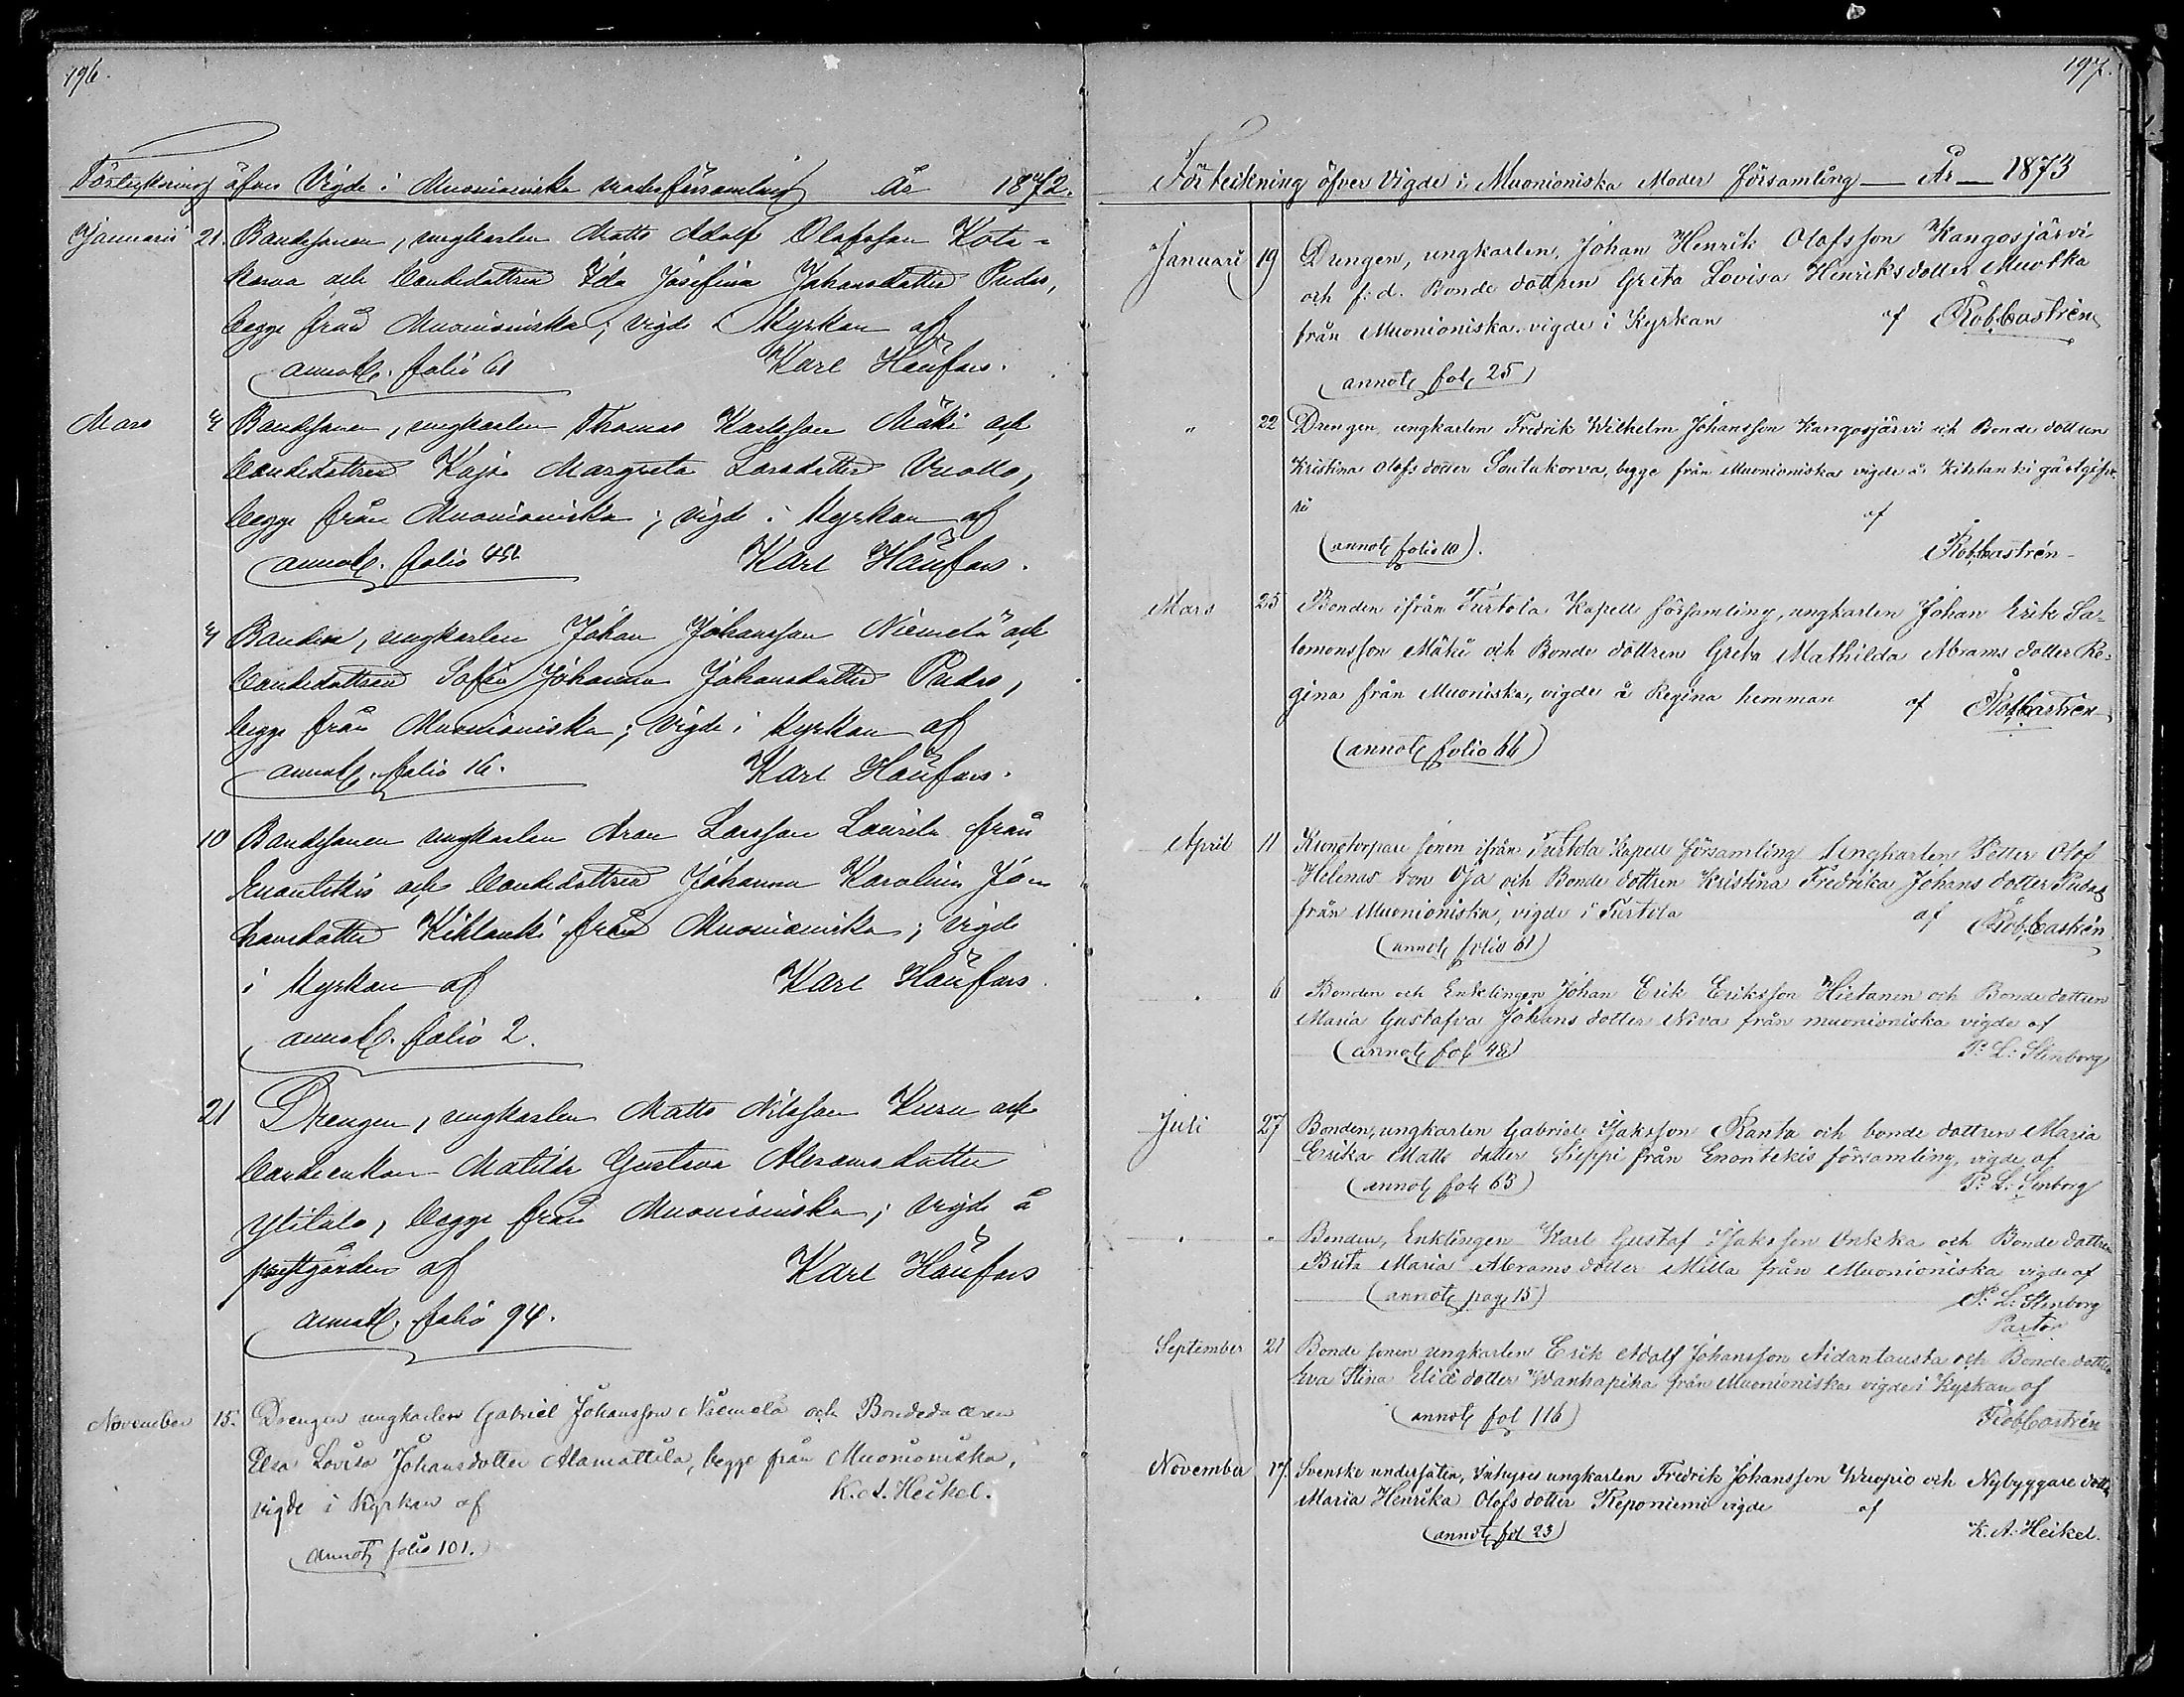 196.
Förteckning öfver Vigde i Muonioniska moderförsamling År 1872.
Januarii 21. Bondesonen, ungkarlen Matts Adolf Olofsson Kota-
korva och bondedottren Ida Josefina Johansdotter Pudas,
begge från Muonioniska; vigde i Kyrkan af
annot. folio 61 Karl Häufors.
Mars 4 Bondesonen, ungkarlen Thomas Karlsson Mäki och
bondedottren Kajsa Margreta Larsdotter Vuotto,
begge från Muonioniska; vigde i Kyrkan af
annot. folio Karl Häufors.
4 Bonden, ungkarlen Johan Johansson Niemelä och
bondedottren Sofia Johanna Johansdotter Pudas,
begge från Muonioniska; vigde i Kyrkan af
annot. folio 16. Karl Häufors.
10 Bondesonen ungkarlen Aron Larsson Laurila från
Enontekis och bondedottren Johanna Karolina Jo-
hansdotter Kihlanki från Muonioniska; vigde
i Kyrkan af Karl Häufors.
annot. folio 2.
21 Drengen, ungkarlen Matts Nilsson Kuru och
bondeenkan Matilda Gustava Abramsdotter
Ylitalo, begge från Muonioniska; vigde å
prestgården af Karl Häufors
annot. folio 94.
November 15. Drengen ungkarlen Gabriel Johansson Niemelä och Bondedottren
Elsa Lovisa Johansdotter Alamattila, begge från Muonioniska,
vigde i Kyrkan af K. A. Heikel.
(annot folio 101.)
197.
Förteckning öfver Vigde i Muonioniska Moder församling — År — 1873
Januari 19 Drengen, ungkarlen, Johan Henrik Olofsson Kangosjärvi
och f: d. Bonde dottren Greta Lovisa Henriksdotter Muotka
från Muonioniska vigde i Kyrkan af Rob. Castrén
(annot fol 25)
" 22 Drengen ungkarlen Fredrik Wilhelm Johansson Kangosjärvi och Bonde dottren
Kristina Olofs dotter Soutukorva, begge från Muonioniska vigde å Kihlanki gästgifve-
ri af
(annot folio 10). Rob. Castrén
Mars 25 Bonden ifrån Turtola Kapell församling, ungkarlen Johan Erik Sa-
lomonsson Mäki och Bonde dottren Greta Mathilda Abrams dotter Re-
gina från Muoniska, vigde å Regina hemman af Rob. Castrén
(annot folio 66)
April 11 Kronotorpare sonen ifrån Turtola Kapell församling Ungkarlen Petter Olof
Helenas son Oja och Bonde dottren Kristina Fredrika Johans dotter Pudas
från Muonioniska, vigde i Turtola af Rob. Castrén
(annot folio 61)
" 6 Bonden och Enklingen Johan Erik Eriksson Hietanen och Bonde dottren
Maria Gustafva Johans dotter Niva från muonioniska vigde af
(annot fol 48) P: L: Stenborg
Juli 27 Bonden, ungkarlen Gabriel Isaksson Ranta och bonde dottren Maria
Erika Matts dotter Sieppi från Enontekis församling, vigde af
(annot fol 63) P: L: Stenborg
" " Bonden, Enklingen Karl Gustaf Isaksson Unkka och Bonde dottren
Brita Maria Abrams dotter Mella från Muonioniska vigde af
(annot pag 15) P: L: Stenborg
Pastor
September 21 Bonde sonen ungkarlen Erik Adolf Johansson Aidantausta och Bonde dottren
Eva Stina dotter Wanhapiha från Muonioniska vigde i Kyrkan af
(annot fol 116) Rob. Castrén
November 17. Svenske undersåten, Inhyses ungkarlen Fredrik Johansson Wuopio och Nybyggare dottren
Maria Henrika Olofs dotter Reponiemi vigde af
(annot fol 23) K. A. Heikel.